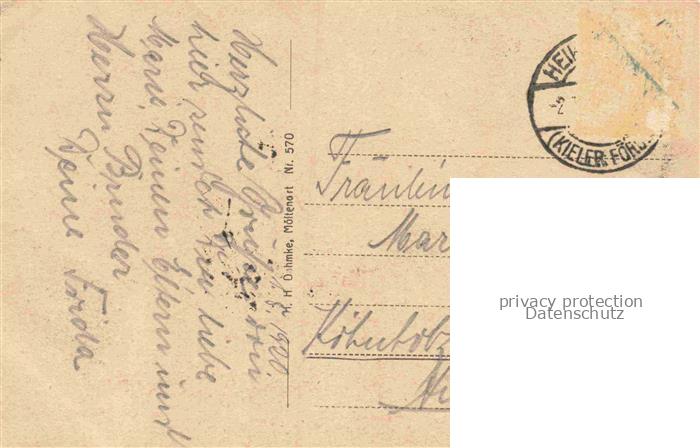 Herzliche Grüße von
hier sendet
liebe
Marie Deinen Eltern und
Herrn Bruder
Deine Frida
1920
H. H. Dahmke, Möltenort Nr. 570
HEI
(KIELER FÖR
Fräulein
Mar
privacy protection
Datenschutz